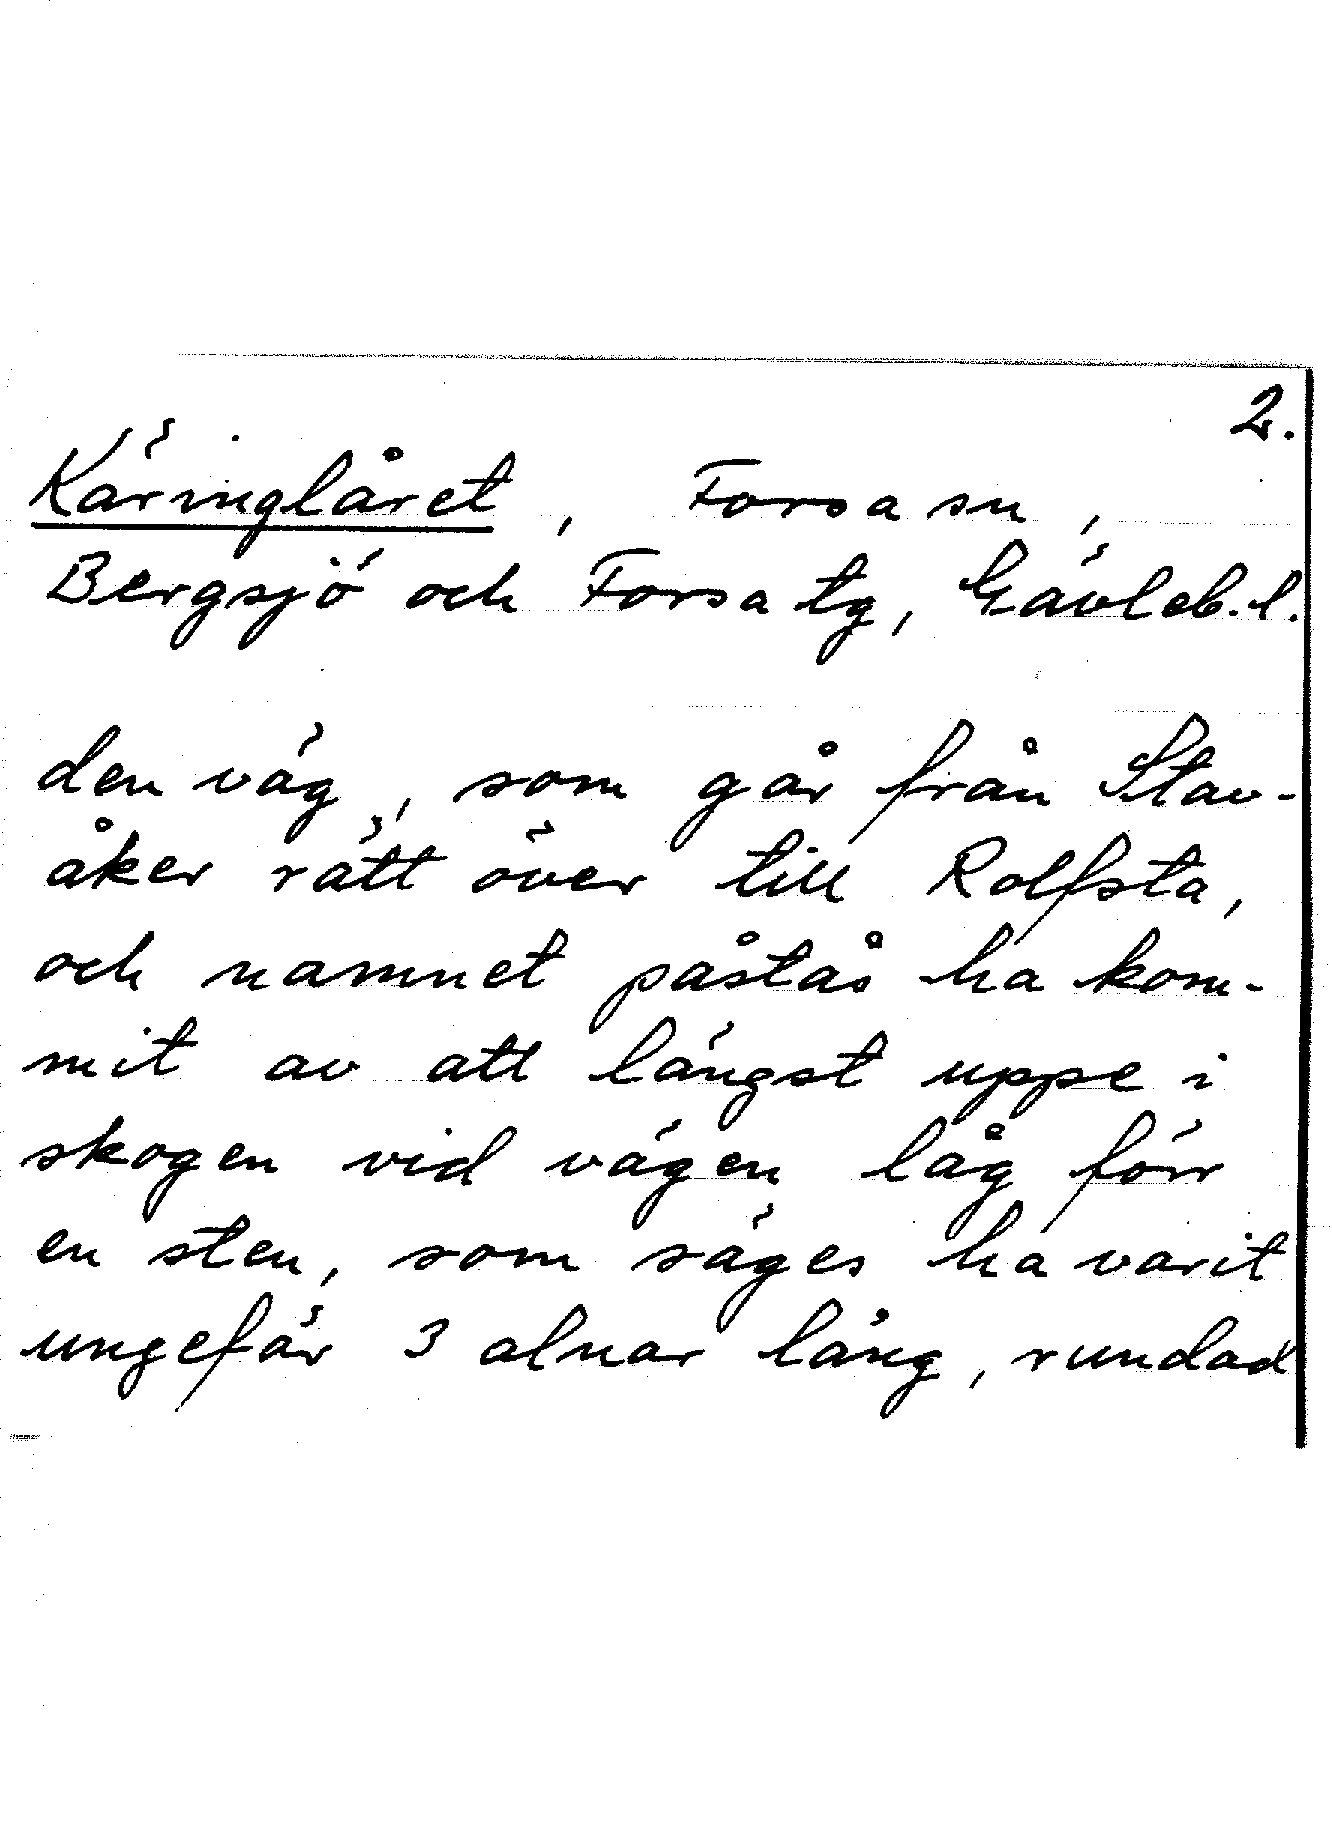 2.
Käringlåret, Forsa sn,
Bergsjö och Forsa tg, Gävleb. l.
den väg, som går från Stav-
åker rätt över till Rolfsta,
och namnet påstås ha kom-
mit av att längst uppe i
skogen vid vägen låg förr
en sten, som säges ha varit
ungefär 3 alnar lång, rundad